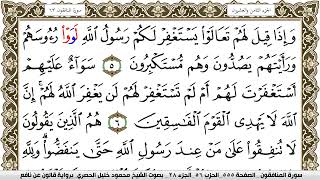 سورة المنافقون ٦٣ الجزء الثامن والعشرون
وَإِذَا قِيلَ لَهُمْ تَعَالَوْاْ يَسْتَغْفِرْ لَكُمْ رَسُولُ اللَّهِ لَوَوْاْ رُءُوسَهُمْ
وَرَأَيْتَهُمْ يَصُدُّونَ وَهُم مُّسْتَكْبِرُونَ ٥ سَوَآءٌ عَلَيْهِمْ
أَسْتَغْفَرْتَ لَهُمْ أَمْ لَمْ تَسْتَغْفِرْ لَهُمْ لَن يَغْفِرَ اللَّهُ لَهُمْ إِنَّ
اللَّهَ لَا يَهْدِى الْقَوْمَ الْفَٰسِقِينَ ٦ هُمُ الَّذِينَ يَقُولُونَ
لَا تُنفِقُواْ عَلَىٰ مَنْ عِندَ رَسُولِ اللَّهِ حَتَّىٰ يَنفَضُّواْ وَلِلَّهِ
سورة المنافقون - الصفحة ٥٥٥ - الحزب ٥٦ - الجزء ٢٨ - بصوت الشيخ محمود خليل الحصري - برواية قالون عن نافع